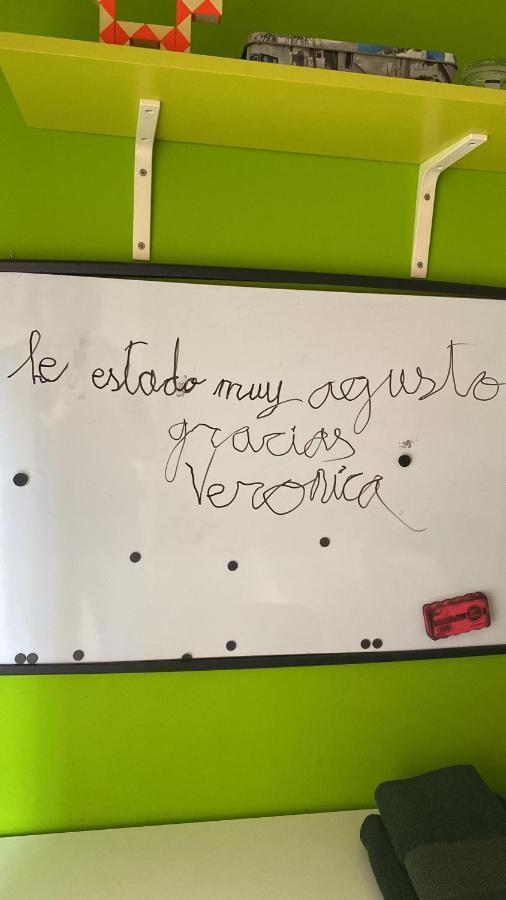 he estado muy agusto
gracias
Veronica